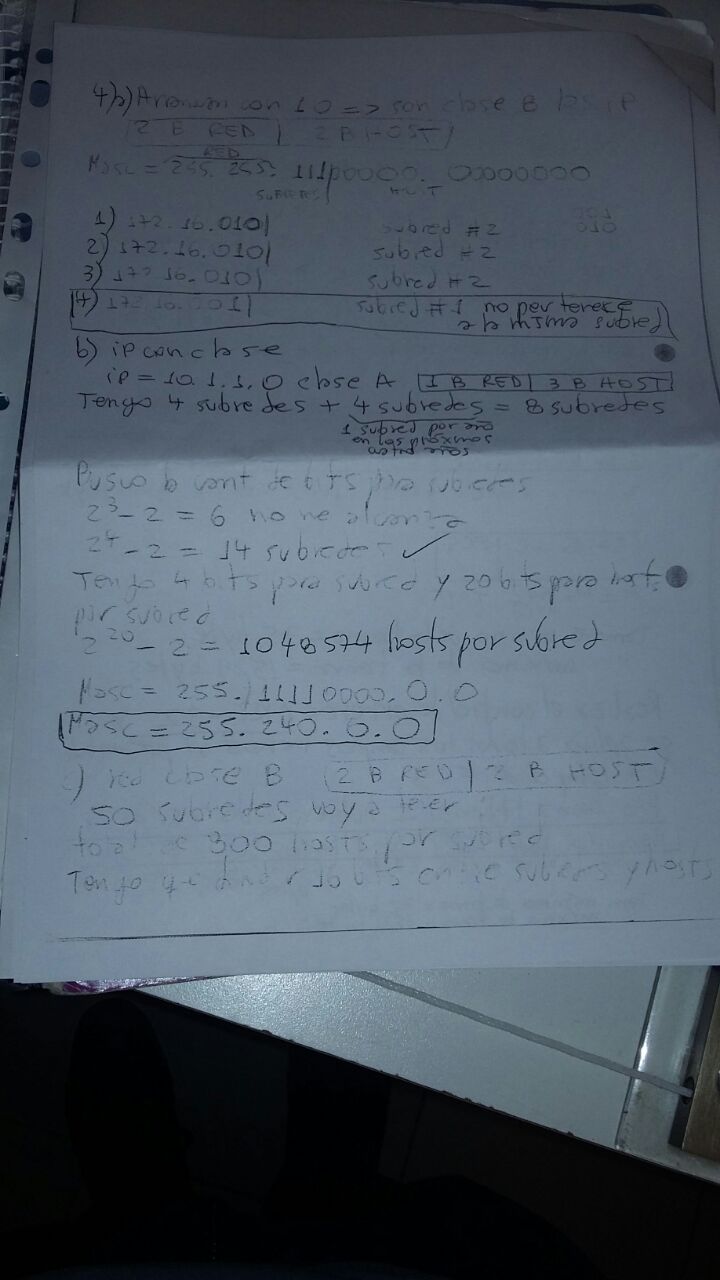 4b) Arrancan con 10 => son clase B las ip
2 B RED | 2 B HOST
RED
Masc = 255. 255. 11100000. 00000000
SUBREDES HOST
1) 172.16.010| subred # 2
2) 172.16.010| subred # 2
3) 172.16.010| subred # 2
4) 172.16.001| subred # 1 no pertenece
a la misma subred
101
010
b) ip con clase
ip = 10.1.1.0 clase A 1 B RED | 3 B HOST
Tengo 4 subredes + 4 subredes = 8 subredes
1 subred por año
en los próximos
cuatro años
Busco la cant de bits para subredes
2³ - 2 = 6 no me alcanza
2⁴ - 2 = 14 subredes ✓
Tengo 4 bits para subred y 20 bits para hosts
por subred
2²⁰ - 2 = 1048574 hosts por subred
Masc = 255.11110000.0.0
Masc = 255.240.0.0
c) red clase B 2 B RED | 2 B HOST
50 subredes voy a tener
total de 300 hosts por subred
Tengo que 16 bits entre subredes y hosts